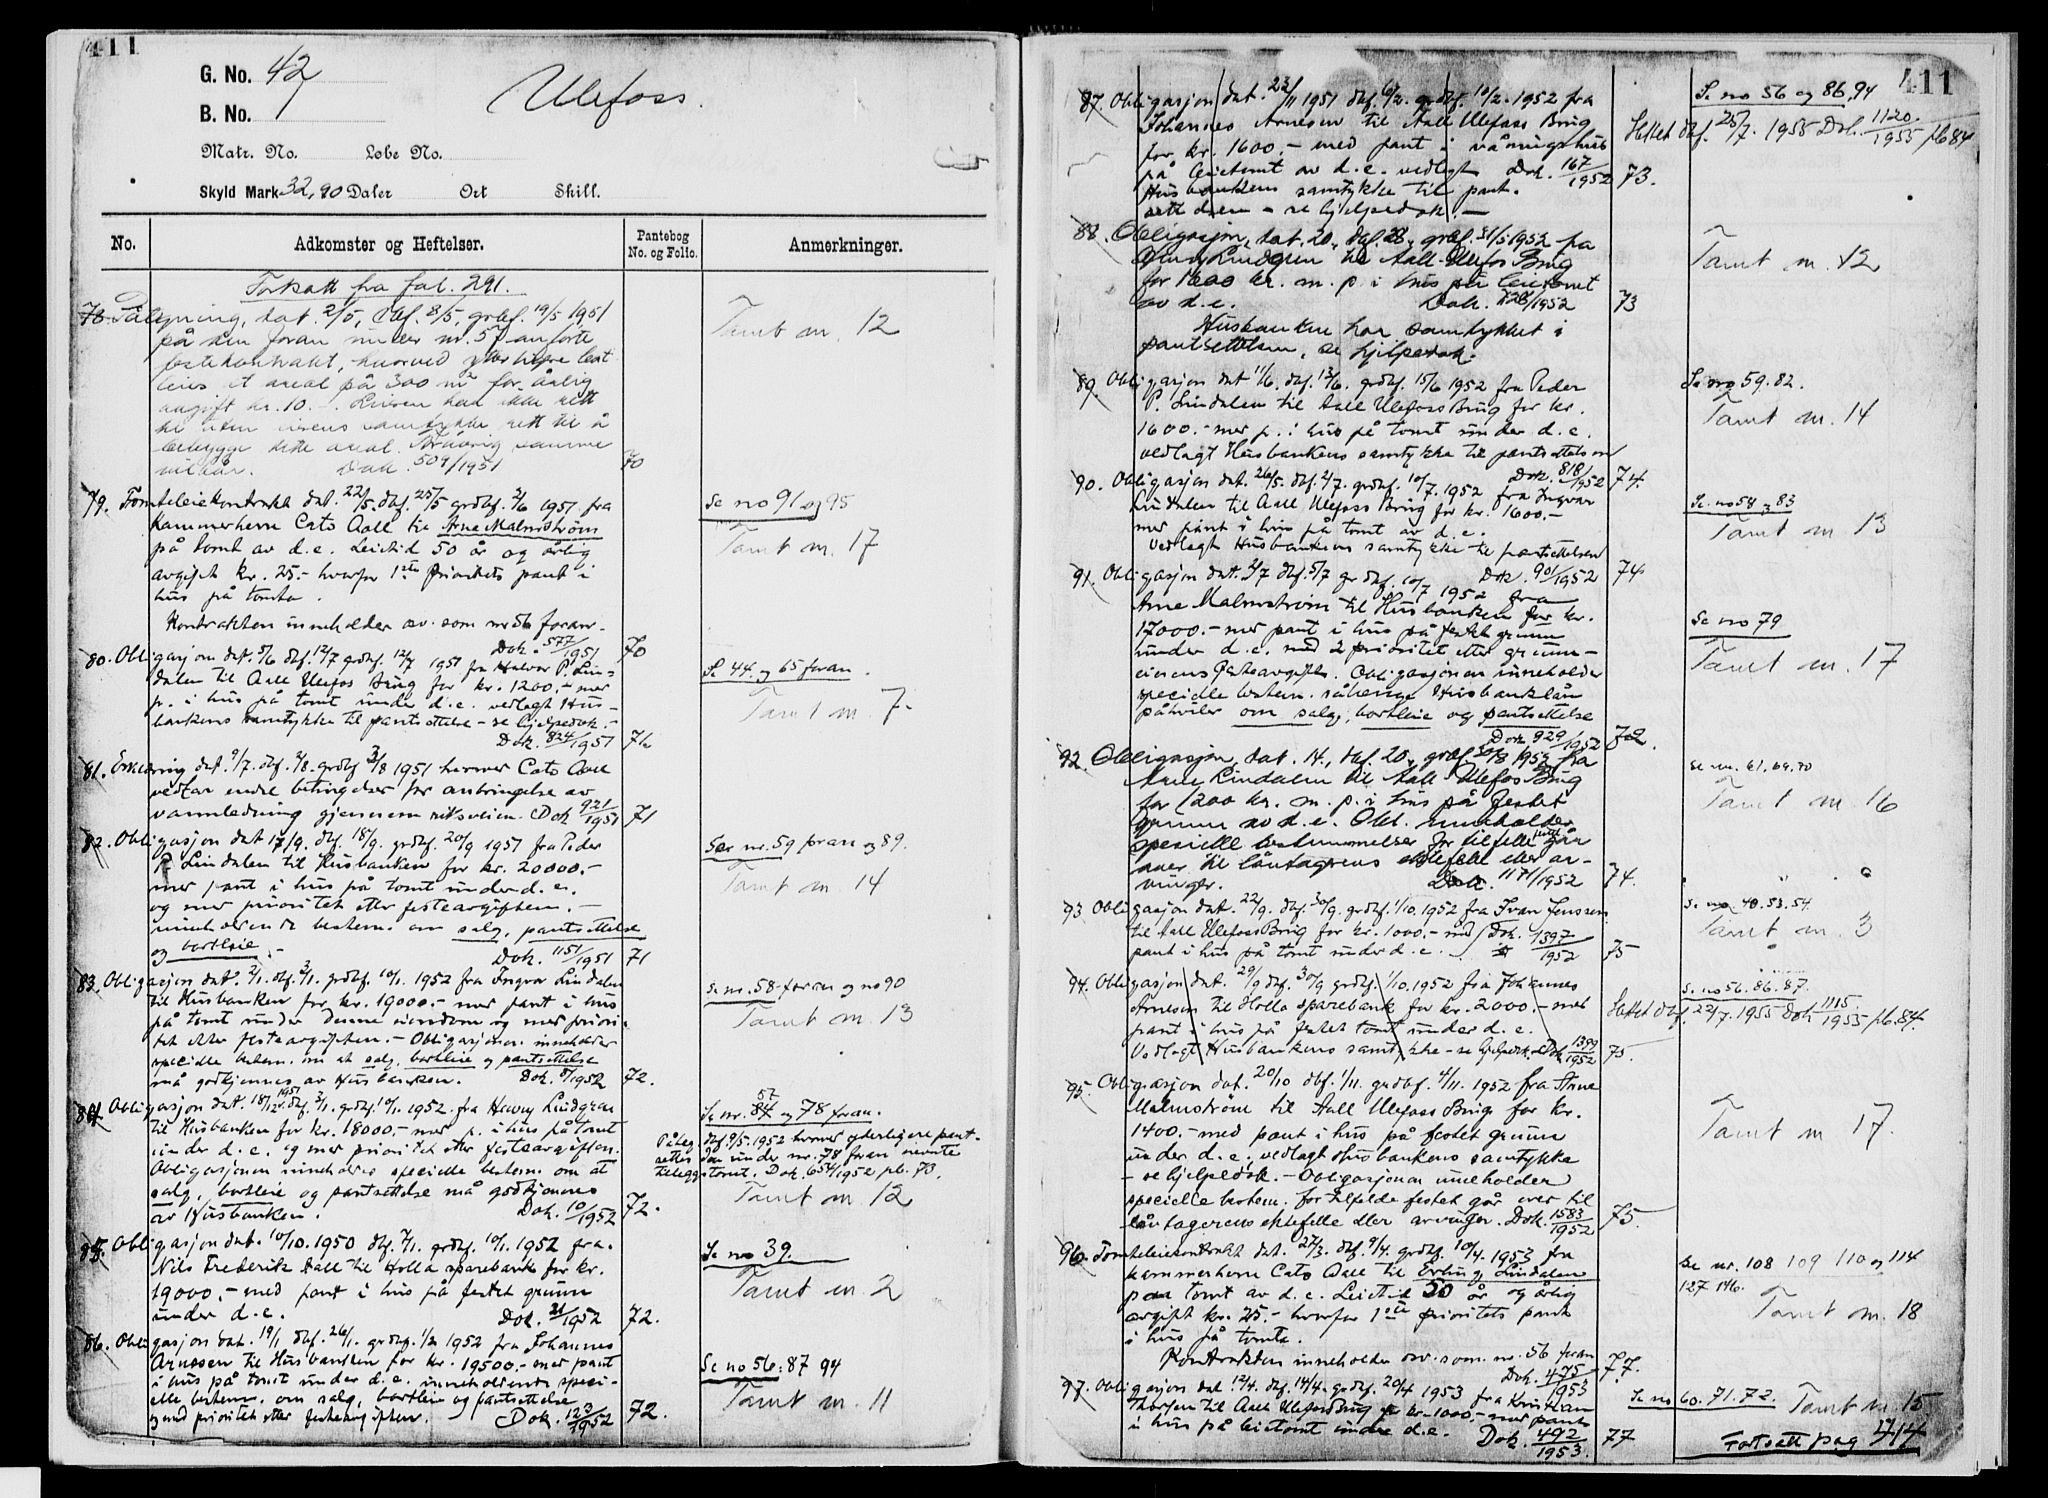 411
G. No. 42
Ulefoss.
B. No. 1
Matr. No. Løbe No.
Skyld Mark 32,90 Daler Ort Skill.
No. Adkomster og Heftelser. Pantebog No. og Folio. Anmerkninger.
Fortsatt fra fol. 291.
78. Påtegning, dat. 2/5, dbf. 8/5, grbf. 19/5 1951
på den foran under nr. 57 anførte
festekontrakt, hvorved ytterligere bort
leies et areal på 300 m² for årlig
avgift kr. 10.-. Leieren har ikke rett
til uten eierens samtykke rett til å
bebygge dette areal. Forøvrig samme
vilkår. Dok. 509/1951 70
Tomt nr. 12
79. Tomteleiekontrakt dat. 22/5. dbf. 25/5 grdbf. 2/6 1951 fra
Kammerherre Cato Aall til Arne Malmstrøm
på tomt av d.e. Leietid 50 år og årlig
avgift kr. 25.- hvorfor 1ste prioritets pant i
hus på tomta.
Kontrakten inneholder av. som nr 56 foran.
Dok. 577/1951 70
Se no 91 og 95
Tomt nr. 17
80. Obligasjon dat. 5/6 dbf. 12/7 grdbf. 12/7 1951 fra Halvor P. Lin-
dalen til Aall Ulefos Brug for kr. 1200.- mer
p. i hus på tomt under d.e. vedlagt Hus-
bankens samtykke til pantsettelse - se hjelpedok.-
Dok. 824/1951 71.
Se 44. og 65 foran.
Tomt nr. 7.
81. Erklæring dat. 9/7. dbf. 2/8. grdbf. 3/8 1951 hvorver Cato Aall
vedtar endel betingelser for anbringelse av
vannledning gjennem riksveien. Dok 921/1951 71
82. Obligasjon dat 17/9. dbf. 18/9. grdbf. 20/9 1951 fra Peder
P. Lindalen til Husbanken for kr. 20000.-
mer pant i hus på tomt under d.e.
og mer prioritet etter festeavgiften.-
inneholdende bestem. om salg, pantsettelse
og bortleie.- Dok. 1151/1951 71
Se nr. 59 foran og 89.
Tomt nr. 14
83. Obligasjon dat. 2/1. dbf. 3/1. grdbf. 10/1. 1952 fra Ingvar Lindalen
til Husbanken for kr. 19000.- mer pant i hus
på tomt under denne eiendom og mer priori-
tet etter festeavgiften.- Obligasjonen inneholder
specielle bestem. om at salg, bortleie og pantsettelse
må godkjennes av Husbanken. Dok. 8/1952 72.
Se nr. 58 foran og no 90
Tomt nr. 13
84. Obligasjon dat. 18/12 1951 dbf. 3/1. grdbf. 10/1. 1952. fra Henry Lindgren
til Husbanken for kr. 18000.- mer p. i hus på tomt
under d.e. og mer prioritet etter festeavgiften.
Obligasjonen inneholder specielle bestem. om at
salg, bortleie og pantsettelse må godkjennes
av Husbanken. Dok. 10/1952 72.
Se nr. 57 og 78 foran.
Påteg. dbf. 9/5. 1952 hvorver ytterligere pant-
settes den under nr. 78 foran nevnte
tileggstomt. Dok. 654/1952 pb. 73.
Tomt nr 12
85. Obligasjon dat. 10/10. 1950 dbf. 7/1. grdbf. 10/1. 1952 fra
Nils Frederik Aall til Holla sparebank for kr.
19000.- med pant i hus på festet grunn
under d.e. Dok. 21/1952 72.
Se no 39.
Tomt nr. 2
86. Obligasjon dat. 19/1 dbf. 26/1. grdbf. 1/2 1952 fra Johannes
Arnesen til Husbanken for kr. 19500.- mer pant
i hus på tomt under d.e. inneholdende speci-
elle bestem. om salg, bortleie og pantsettelse
og med prioritet etter festeavgiften. Dok. 123/1952 72.
Se no 56. 87 94
Tomt nr. 11
411
87. Obligasjon dat. 23/11 1951 dbf. 6/2. grdbf. 10/2. 1952 fra
Johannes Arnesen til Aall Ulefoss Brug
for kr. 1600.- med pant i våningshus
på leietomt av d.e. vedlagt Dok. 167/1952 73.
Husbankens samtykke til pant.
settelsen - se hjelpedok.-
Se no 56 og 86. 94
Slettet dbf. 25/7. 1955 Dok. 1120./1955 pb 84
88. Obligasjon, dat. 20., dbf. 28., grbf. 31/5 1952 fra
Henry Lindgren til Aall Ulefos Brug
for 1600 kr. m. p. i hus på leietomt
av d.e. Dok. 728/1952 73
Husbanken har samtykket i
pantsettelsen, se hjelpedok.
Tomt nr. 12
89. Obligasjon dat 11/6. dbf. 13/6. grdbf. 15/6 1952 fra Peder
P. Lindalen til Aall Ulefoss Brug for kr.
1600.- mer p. i hus på tomt under d.e.
vedlagt Husbankens samtykke til pantsettelsen
Dok. 818/1952 74.
Se no 59. 82.
Tomt nr. 14
90. Obligasjon dat. 26/5. dbf. 2/7. grdbf. 10/7. 1952 fra Ingvar
Lindalen til Aall Ulefoss Brug for kr. 1600.-
mer pant i hus på tomt av d.e.
Vedlagt Husbankens samtykke til pantsettelsen
Dok. 901/1952 74
Se. no 58 og 83
Tomt nr. 13
91. Obligasjon dat. 2/7 dbf. 5/7 grdbf. 10/7 1952 fra
Arne Malmstrøm til Husbanken for kr.
17000.- mer pant i hus på festet grunn
under d.e. med 2 prioritet etter grunn-
eierens festeavgift. Obligasjonen inneholder
specielle bestem. sålenge Husbanklån
påhviler om salg, bortleie og pantsettelse
Dok 929/1952 72.
Se no 79
Tomt nr. 17
92. Obligasjon, dat. 14., dbf. 20., grbf. 30/8 1952 fra
Lindalen til Aall Ulefos Brug
for 1200 kr. m. p. i hus på festet
grunn av d.e. Obl. inneholder
specielle bestemmelser for tilfelle huset går
over til låntagerens ektefelle eller ar-
vinger. Dok. 1171/1952 74.
Se nr. 61. 69. 70
Tomt nr 16
93 Obligasjon dat. 22/9. dbf. 30/9. grdbf. 1/10. 1952 fra Ivar Jenssen
til Aall Ulefoss Brug for kr. 1000.- med Dok. 1397/1952
pant i hus på tomt under d.e. 75
Se no. 40. 53. 54.
Tomt nr. 3
94. Obligasjon dat. 29/9 dbf. 30/9 grdbf. 1/10. 1952 fra Johannes
Arnesen til Holla sparebank for kr. 2000.- med
pant i hus på festet tomt under d.e.
Vedlagt Husbankens samtykke - se hjelpedok. Dok 1399/1952 75.
Se no 56. 86. 87.
Slettet dbf. 22/7. 1955 Dok 1115./1955 pb. 84.
95. Obligasjon dat. 20/10 dbf. 1/11. grdbf. 4/11. 1952 fra Arne
Malmstrøm til Aall Ulefoss Brug for kr.
1400.- med pant i hus på festet grunn
under d.e., vedlagt Husbankens samtykke
- se hjelpedok. - Obligasjonen inneholder
specielle bestem. for tilfelde festet går over til
låntagerens ektefelle eller arvinger. Dok. 1583/1952 75.
Tomt nr 17.
96. Tomteleiekontrakt dat. 27/3. dbf. 9/4. grdbf. 10/4. 1953 fra
kammerherre Cato Aall til Erling Lindalen
paa tomt av d.e. Leietid 50 år og årlig
avgift kr. 25.- hvorfor 1ste prioritets pant
i hus på tomta.
Kontrakten inneholder av. som. nr. 56 foran
Dok. 475/1953 77.
Se nr. 108 109 110 og 114
127 146.
Tomt nr. 18
97. Obligasjon dat 12/4. dbf. 14/4. grdbf. 20/4 1953 fra Kristian
Thorsen til Aall Ulefoss Brug for kr. 1000.- mer pant
i hus på leietomt under d.e. Dok. 492/1953. 77
Se no 60. 71. 72. Tomt nr. 15
Fortsatt pag 414